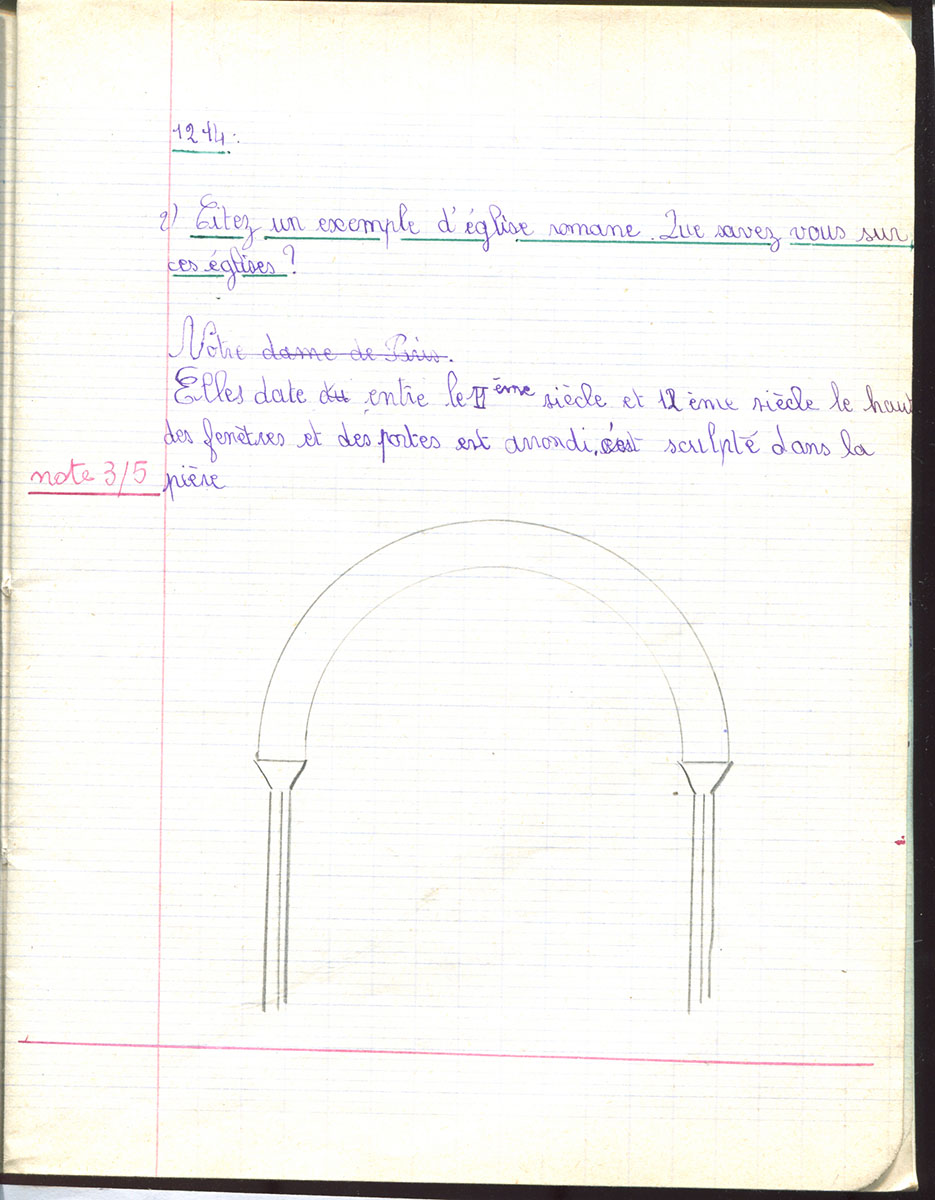 1214.
2) Citez un exemple d'église romane. Que savez vous sur
ces églises ?
Notre dame de Paris.
Elles date du entre le IIème siècle et 12 ème siècle le haut
des fenêtres et des portes est arrondi, c'est sculpté dans la
note 3/5
pière